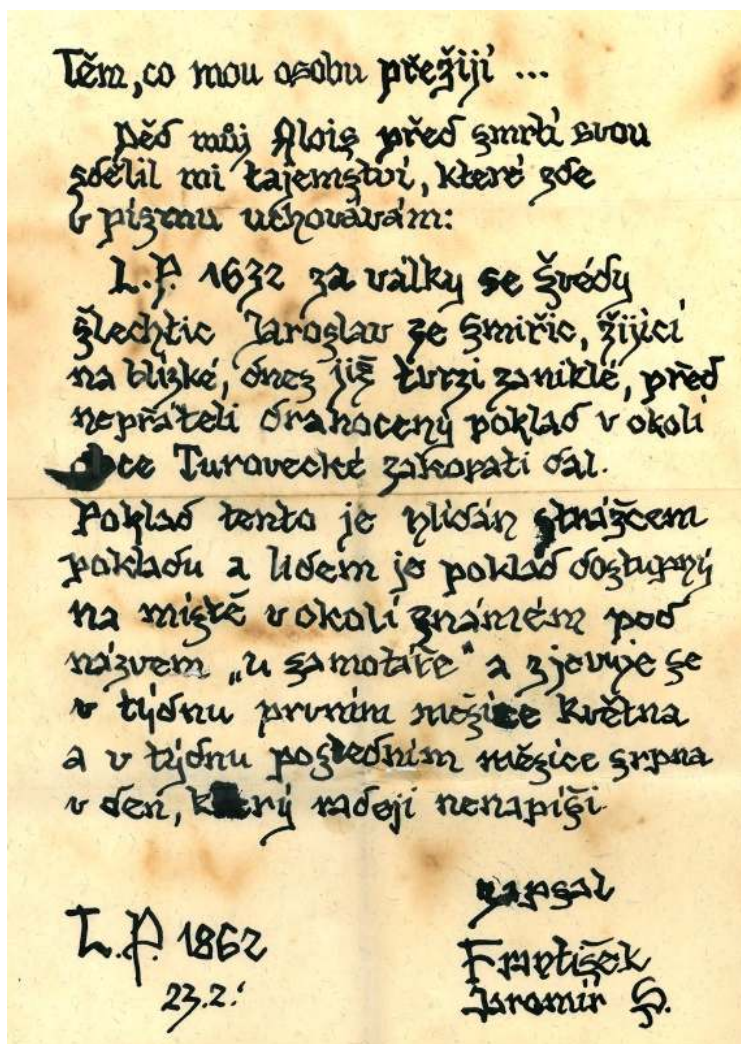 Těm, co mou osobu přežijí ...
Děd můj Alois před smrtí svou
sdělil mi tajemství, které zde
v písmu uchovávám:
L.P. 1632 za války se Švédy
šlechtic Jaroslav ze Smiřic, žijící
na blízké, dnes již tvrzi zaniklé, před
nepřáteli drahocený poklad v okolí
obce Turovecké zakopati dal.
Poklad tento je hlídán strážcem
pokladu a lidem je poklad dostupný
na místě v okolí známém pod
názvem „u samotáře" a zjevuje se
v týdnu prvním měsíce Května
a v týdnu posledním měsíce srpna
v den, který raději nenapíši
zapsal
L.P. 1862
František
23.2.
Jaromír S.